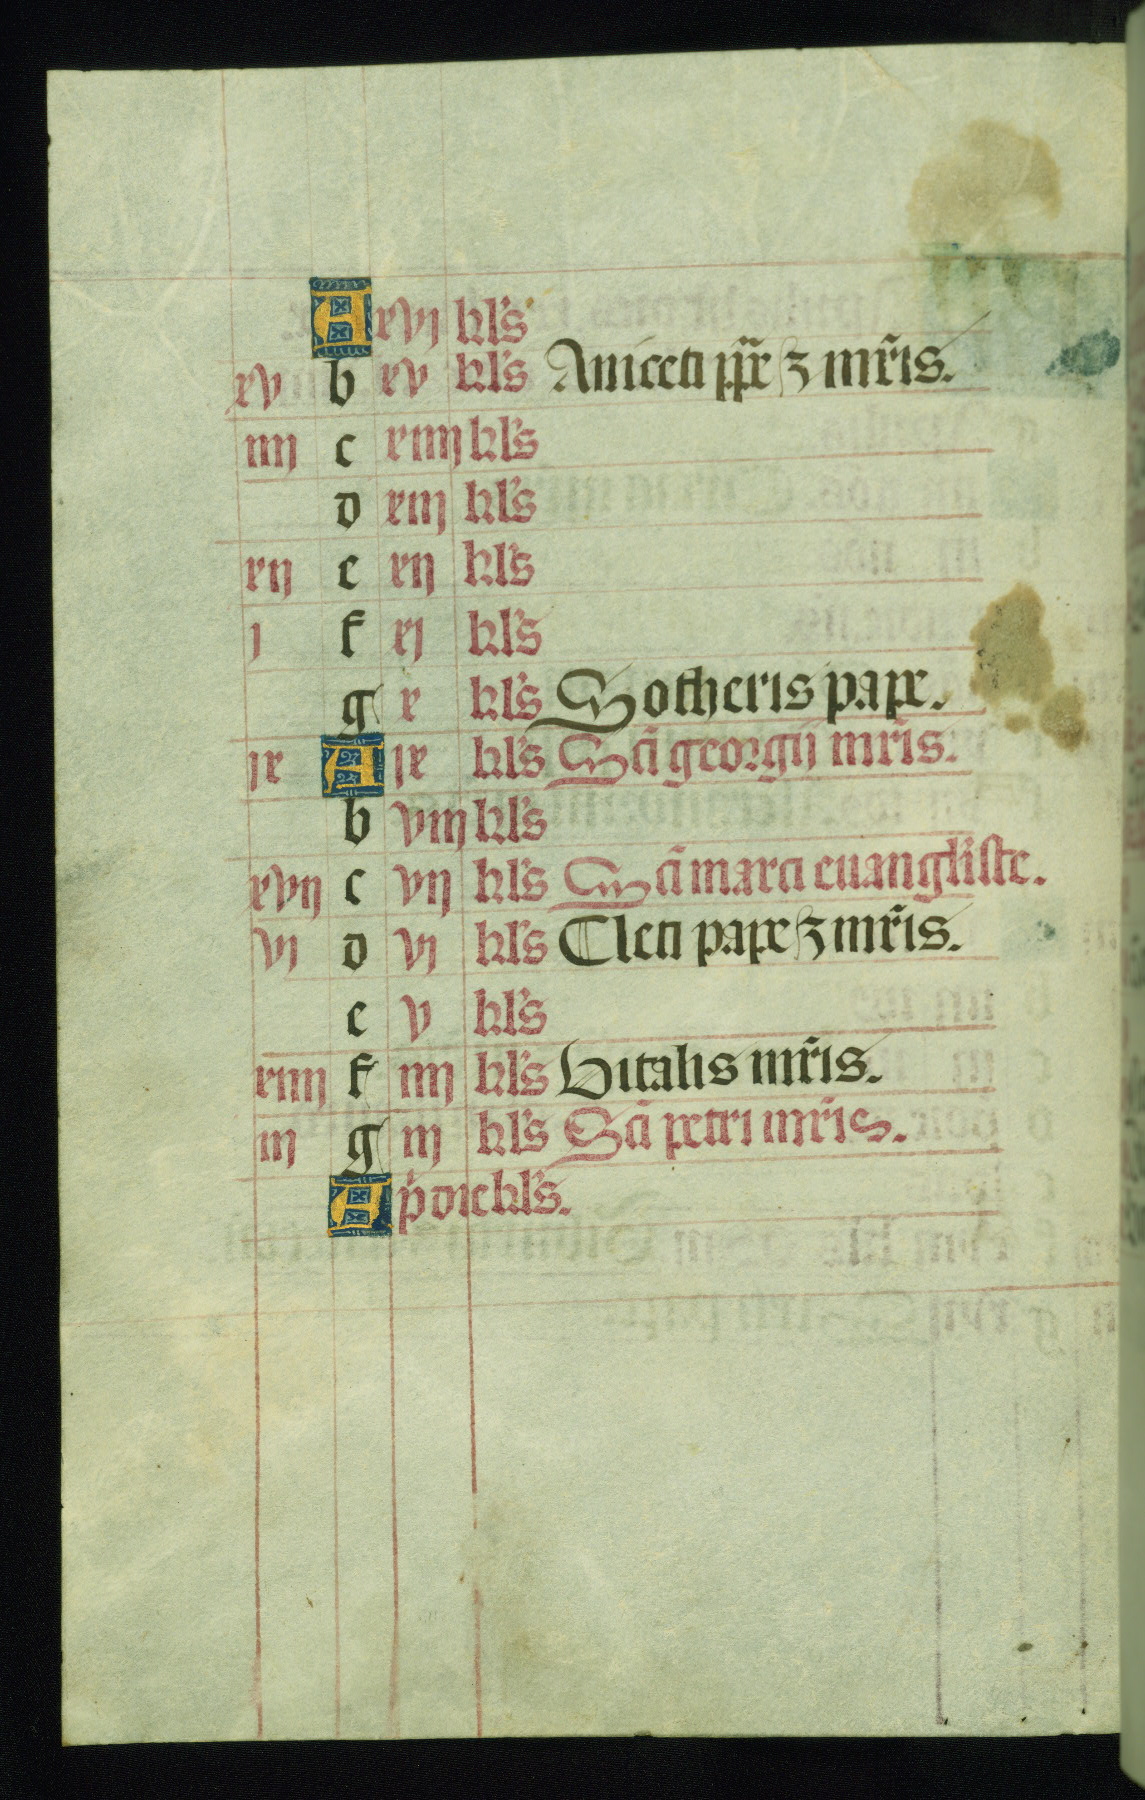 A xvj kl's
xv b xv kl's Aniceti pp̄e ꝫ mr̄is.
iiij c xiiij kl's
d xiij kl's
xij e xij kl's
j f xj kl's
g x kl's Sotheris pape.
jx A jx kl's Scī georgij mr̄is.
b viij kl's
xvij c vij kl's Scī marci euangl'iste.
vj d vj kl's Cleti pape ꝫ mr̄is.
e v kl's
xiiij f iiij kl's Vitalis mr̄is.
iij g iij kl's Scī petri mr̄is.
A p'die kl's.